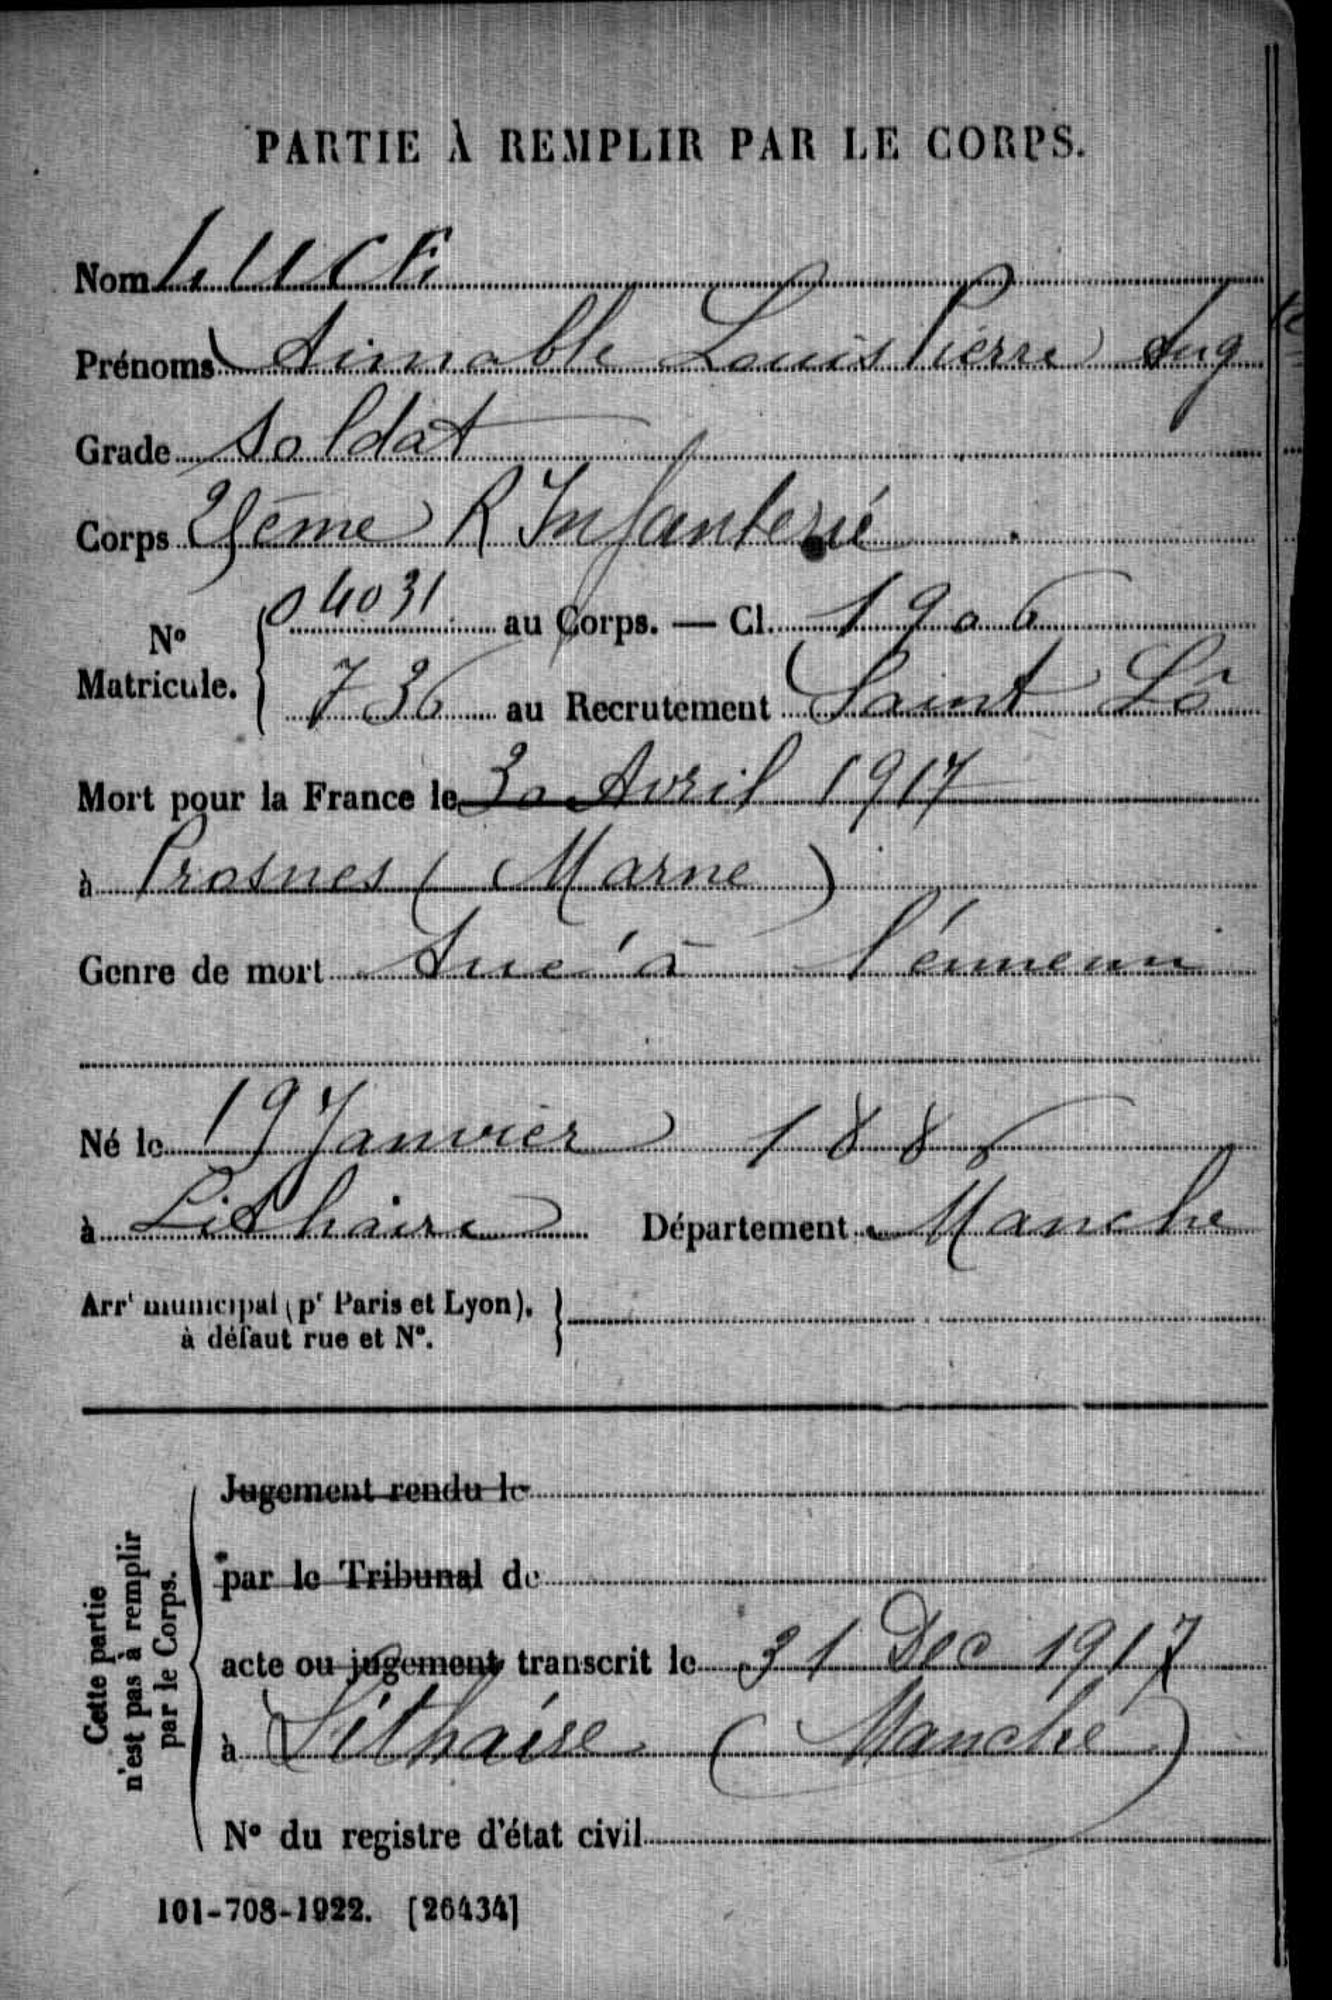 PARTIE À REMPLIR PAR LE CORPS.
Nom LUCE
Prénoms Aimable Louis Pierre Aug
Grade Soldat
Corps 25ème R Infanterie
04031 au Corps. — Cl. 1906
N° Matricule.
736 au Recrutement Saint Lô
Mort pour la France le 30 Avril 1917
à Prosnes (Marne)
Genre de mort Tué à l'ennemi
Né le 19 Janvier 1886
à Lithaire Département Manche
Arrt municipal (pr Paris et Lyon),
à défaut rue et N°.
Jugement rendu le
par le Tribunal de
acte ou jugement transcrit le 31 Dec 1917
à Lithaire (Manche)
N° du registre d'état civil
Cette partie
n'est pas à remplir
par le Corps.
101-708-1922. [26434]